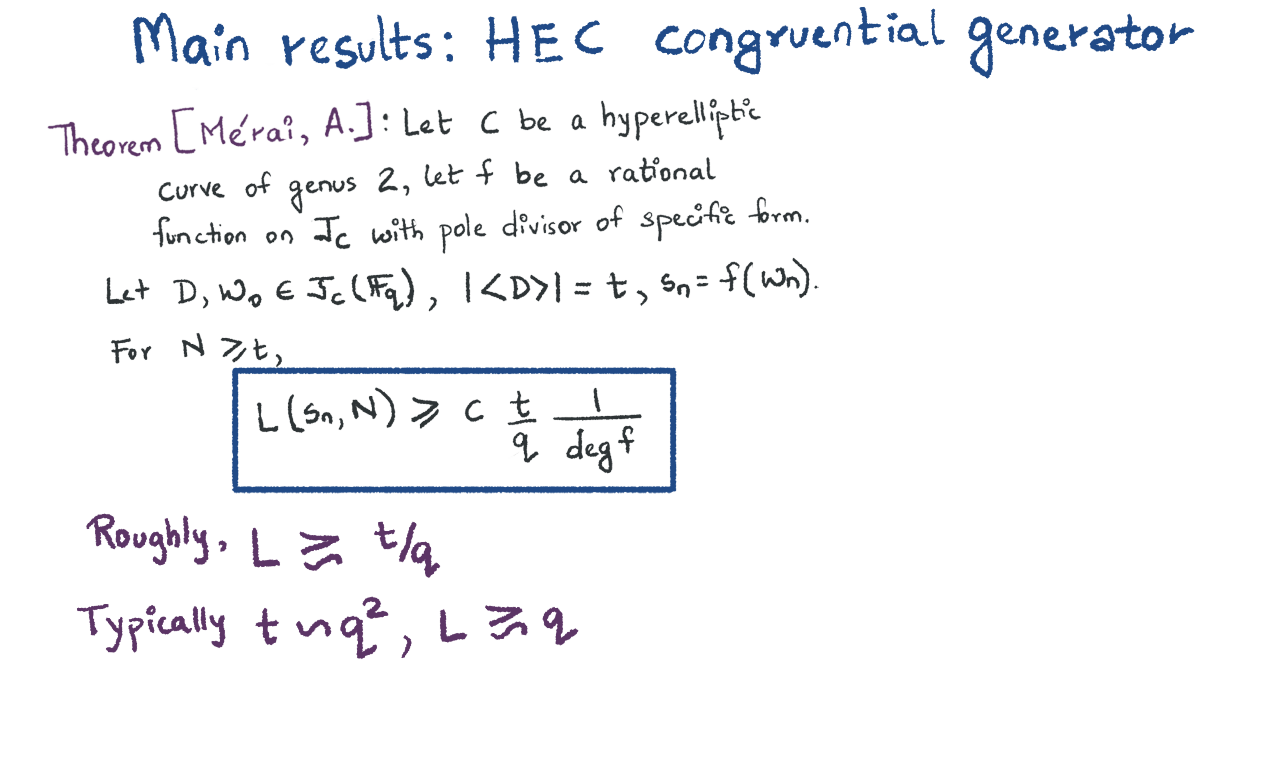 Main results: HEC congruential generator
Theorem [Mérai, A.]: Let C be a hyperelliptic
curve of genus 2, let f be a rational
function on J_C with pole divisor of specific form.
Let D, W₀ ∈ J_C(𝔽_q), |<D>| = t, s_n = f(W_n).
For N ⩾ t,
L(s_n, N) ⩾ c t/q 1/deg f
Roughly, L ⪆ t/q
Typically t ∽ q², L ⪆ q